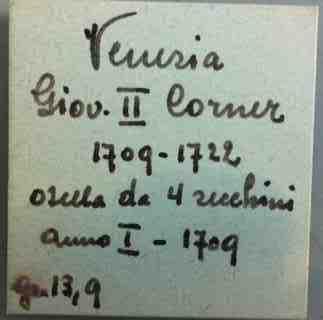 Venezia
Giov. II Corner
1709-1722
osella da 4 zecchini
anno I - 1709
gr. 13,9